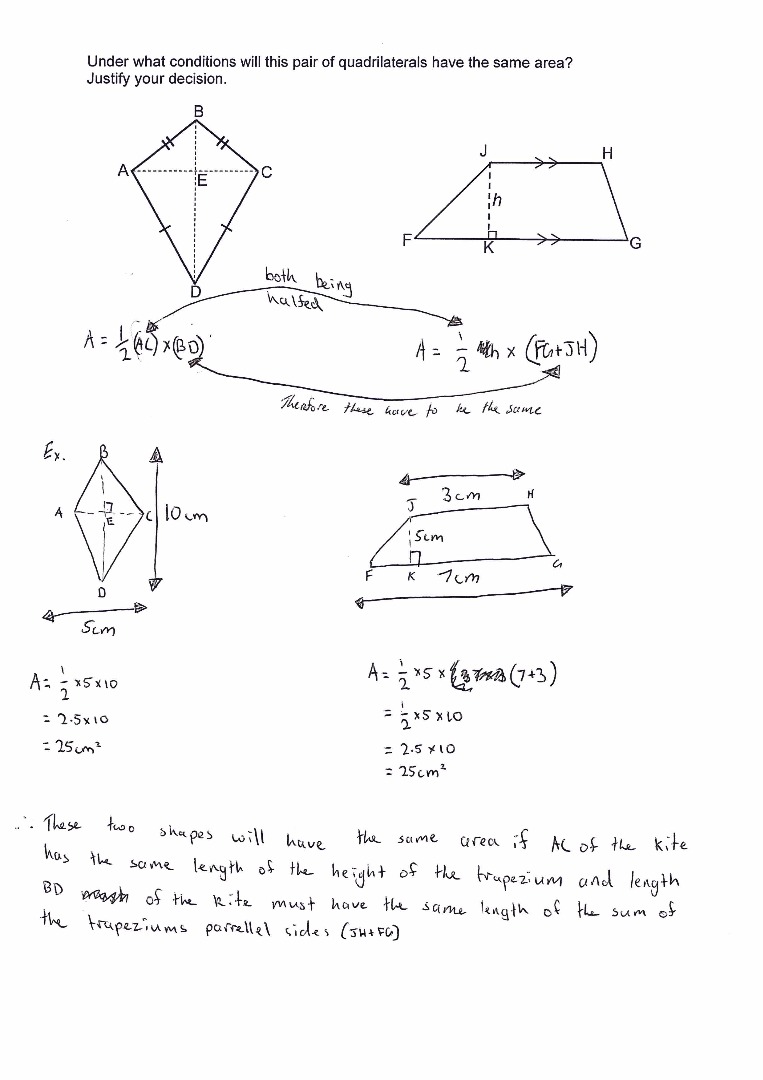 Under what conditions will this pair of quadrilaterals have the same area?
Justify your decision.
B
A
C
E
D
J
H
h
F
K
G
both being
halfed
A = 1/2 (AC) x (BD)
A = 1/2 h x (FG+JH)
Therefore these have to be the same
Ex.
B
A
E
C
D
10cm
5cm
3cm
J
H
5cm
F
K
7cm
G
A = 1/2 x5x10
= 2.5x10
= 25cm²
A = 1/2 x5x (7+3)
= 1/2 x5x10
= 2.5x10
= 25cm²
∴ These two shapes will have the same area if AC of the kite
has the same length of the height of the trapezium and length
BD of the kite must have the same length of the sum of
the trapeziums parrellel sides (JH+FG)